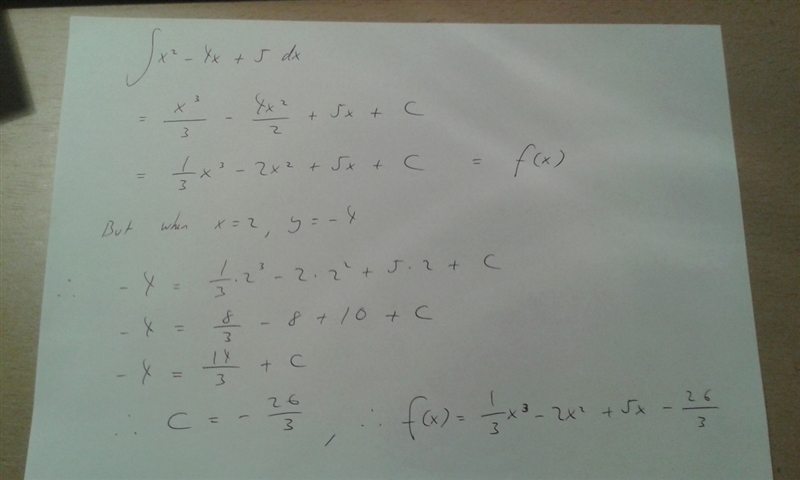 ∫x² - 4x + 5 dx
= x³/3 - 4x²/2 + 5x + C
= 1/3 x³ - 2x² + 5x + C = f(x)
But when x = 2, y = -4
∴ -4 = 1/3 · 2³ - 2 · 2² + 5 · 2 + C
-4 = 8/3 - 8 + 10 + C
-4 = 14/3 + C
∴ C = - 26/3 , ∴ f(x) = 1/3 x³ - 2x² + 5x - 26/3